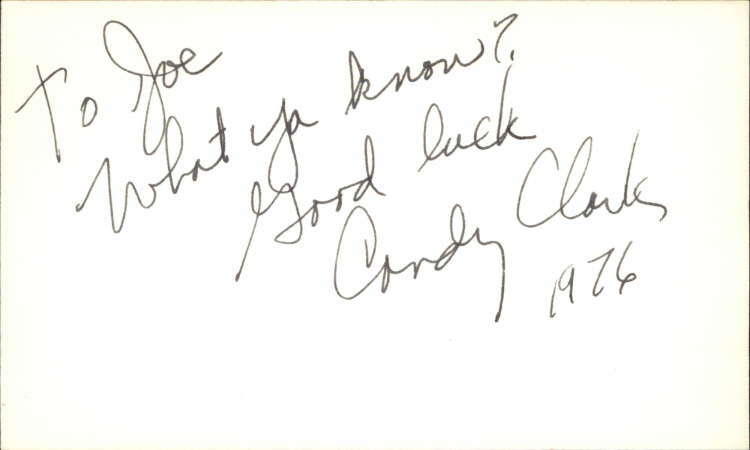 To Joe
What ya know?
Good luck
Candy Clark
1976